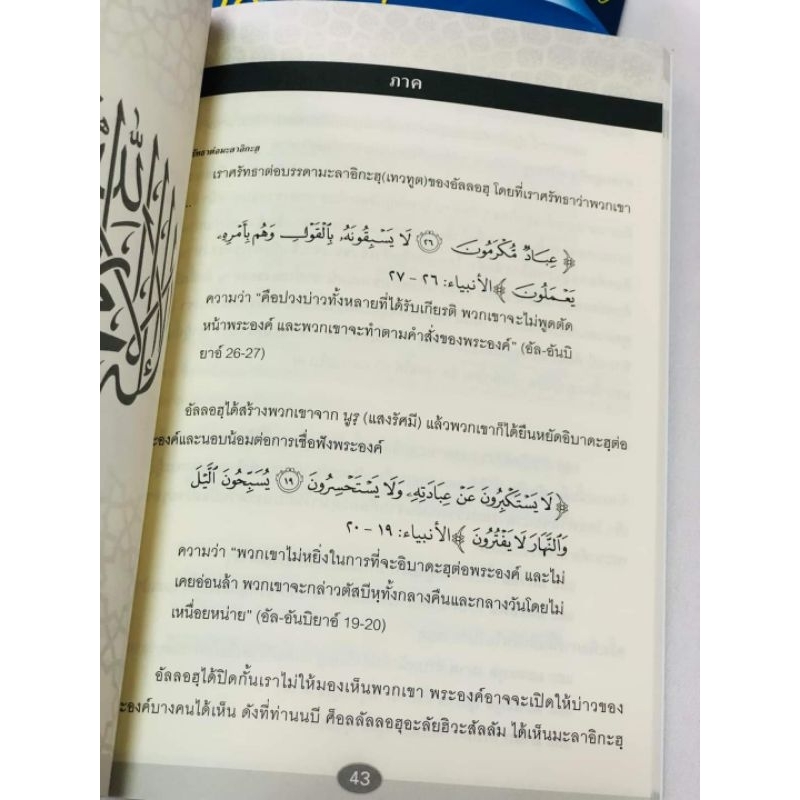 ภาค
ศรัทธาต่อมะลาอิกะฮฺ
เราศรัทธาต่อบรรดามะลาอิกะฮฺ(เทวทูต)ของอัลลอฮฺ โดยที่เราศรัทธาว่าพวกเขา
﴿ عِبَادٌ مُّكْرَمُونَ ٢٦ لَا يَسْبِقُونَهُۥ بِٱلْقَوْلِ وَهُم بِأَمْرِهِۦ
يَعْمَلُونَ ﴾ الأنبياء: ٢٦ - ٢٧
ความว่า “คือปวงบ่าวทั้งหลายที่ได้รับเกียรติ พวกเขาจะไม่พูดตัด
หน้าพระองค์ และพวกเขาจะทำตามคำสั่งของพระองค์” (อัล-อันบิ
ยาอ์ 26-27)
อัลลอฮฺได้สร้างพวกเขาจาก นูรฺ (แสงรัศมี) แล้วพวกเขาก็ได้ยืนหยัดอิบาดะฮฺต่อ
ระองค์และนอบน้อมต่อการเชื่อฟังพระองค์
﴿ لَا يَسْتَكْبِرُونَ عَنْ عِبَادَتِهِۦ وَلَا يَسْتَحْسِرُونَ ١٩ يُسَبِّحُونَ ٱلَّيْلَ
وَٱلنَّهَارَ لَا يَفْتُرُونَ ﴾ الأنبياء: ١٩ - ٢٠
ความว่า “พวกเขาไม่หยิ่งในการที่จะอิบาดะฮฺต่อพระองค์ และไม่
เคยอ่อนล้า พวกเขาจะกล่าวตัสบีหฺทั้งกลางคืนและกลางวันโดยไม่
เหนื่อยหน่าย” (อัล-อันบิยาอ์ 19-20)
อัลลอฮฺได้ปิดกั้นเราไม่ให้มองเห็นพวกเขา พระองค์อาจจะเปิดให้บ่าวของ
ระองค์บางคนได้เห็น ดังที่ท่านนบี ศ็อลลัลลอฮุอะลัยฮิวะสัลลัม ได้เห็นมะลาอิกะฮฺ
43